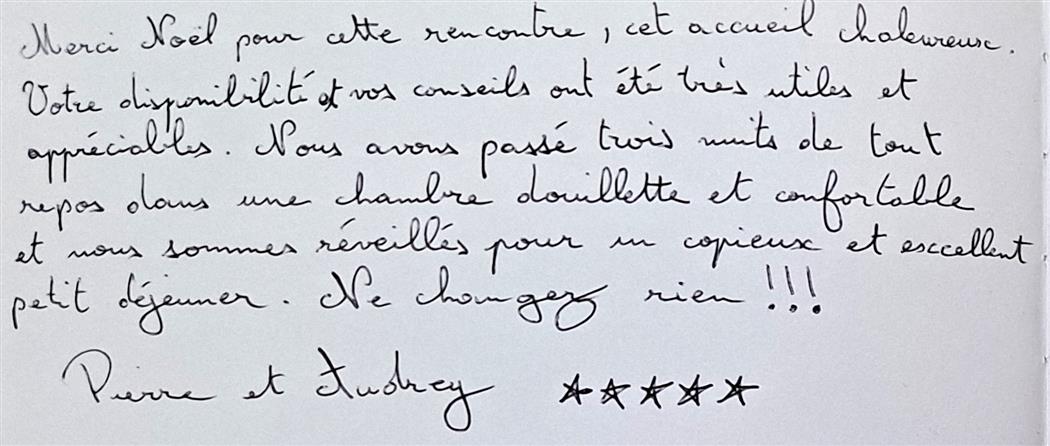 Merci Noël pour cette rencontre, cet accueil chaleureux.
Votre disponibilité et vos conseils ont été très utiles et
appréciables. Nous avons passé trois nuits de tout
repos dans une chambre douillette et confortable
et nous sommes réveillés pour un copieux et excellent
petit déjeuner. Ne changez rien !!!
Pierre et Audrey ★★★★★